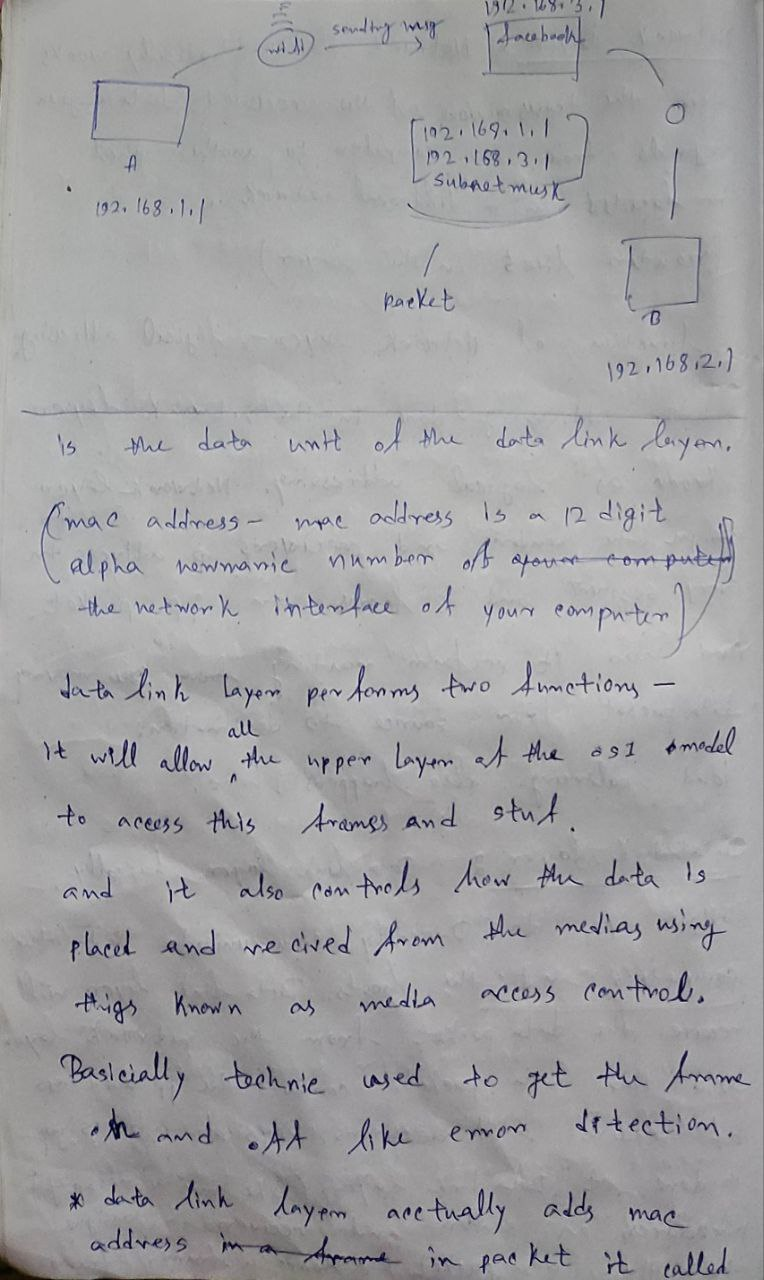 192.168.3.1
wifi
sending msg
facebook
A
192.168.1.1
192.169.1.1
192.168.3.1
subnetmusk
packet
B
192.168.2.1
is the data unit of the data link layer.
(mac address - mac address is a 12 digit
alpha newmaric number of your computer
the network interface of your computer)
data link layer performs two functions —
all
it will allow the upper layer of the osI model
to access this frames and stuf.
and it also controls how the data is
placed and recived from the medias using
thigs known as media access control.
Basicially technic used to get the frame
on and off like error ditection.
* data link layer acctually adds mac
address in a frame in packet it called